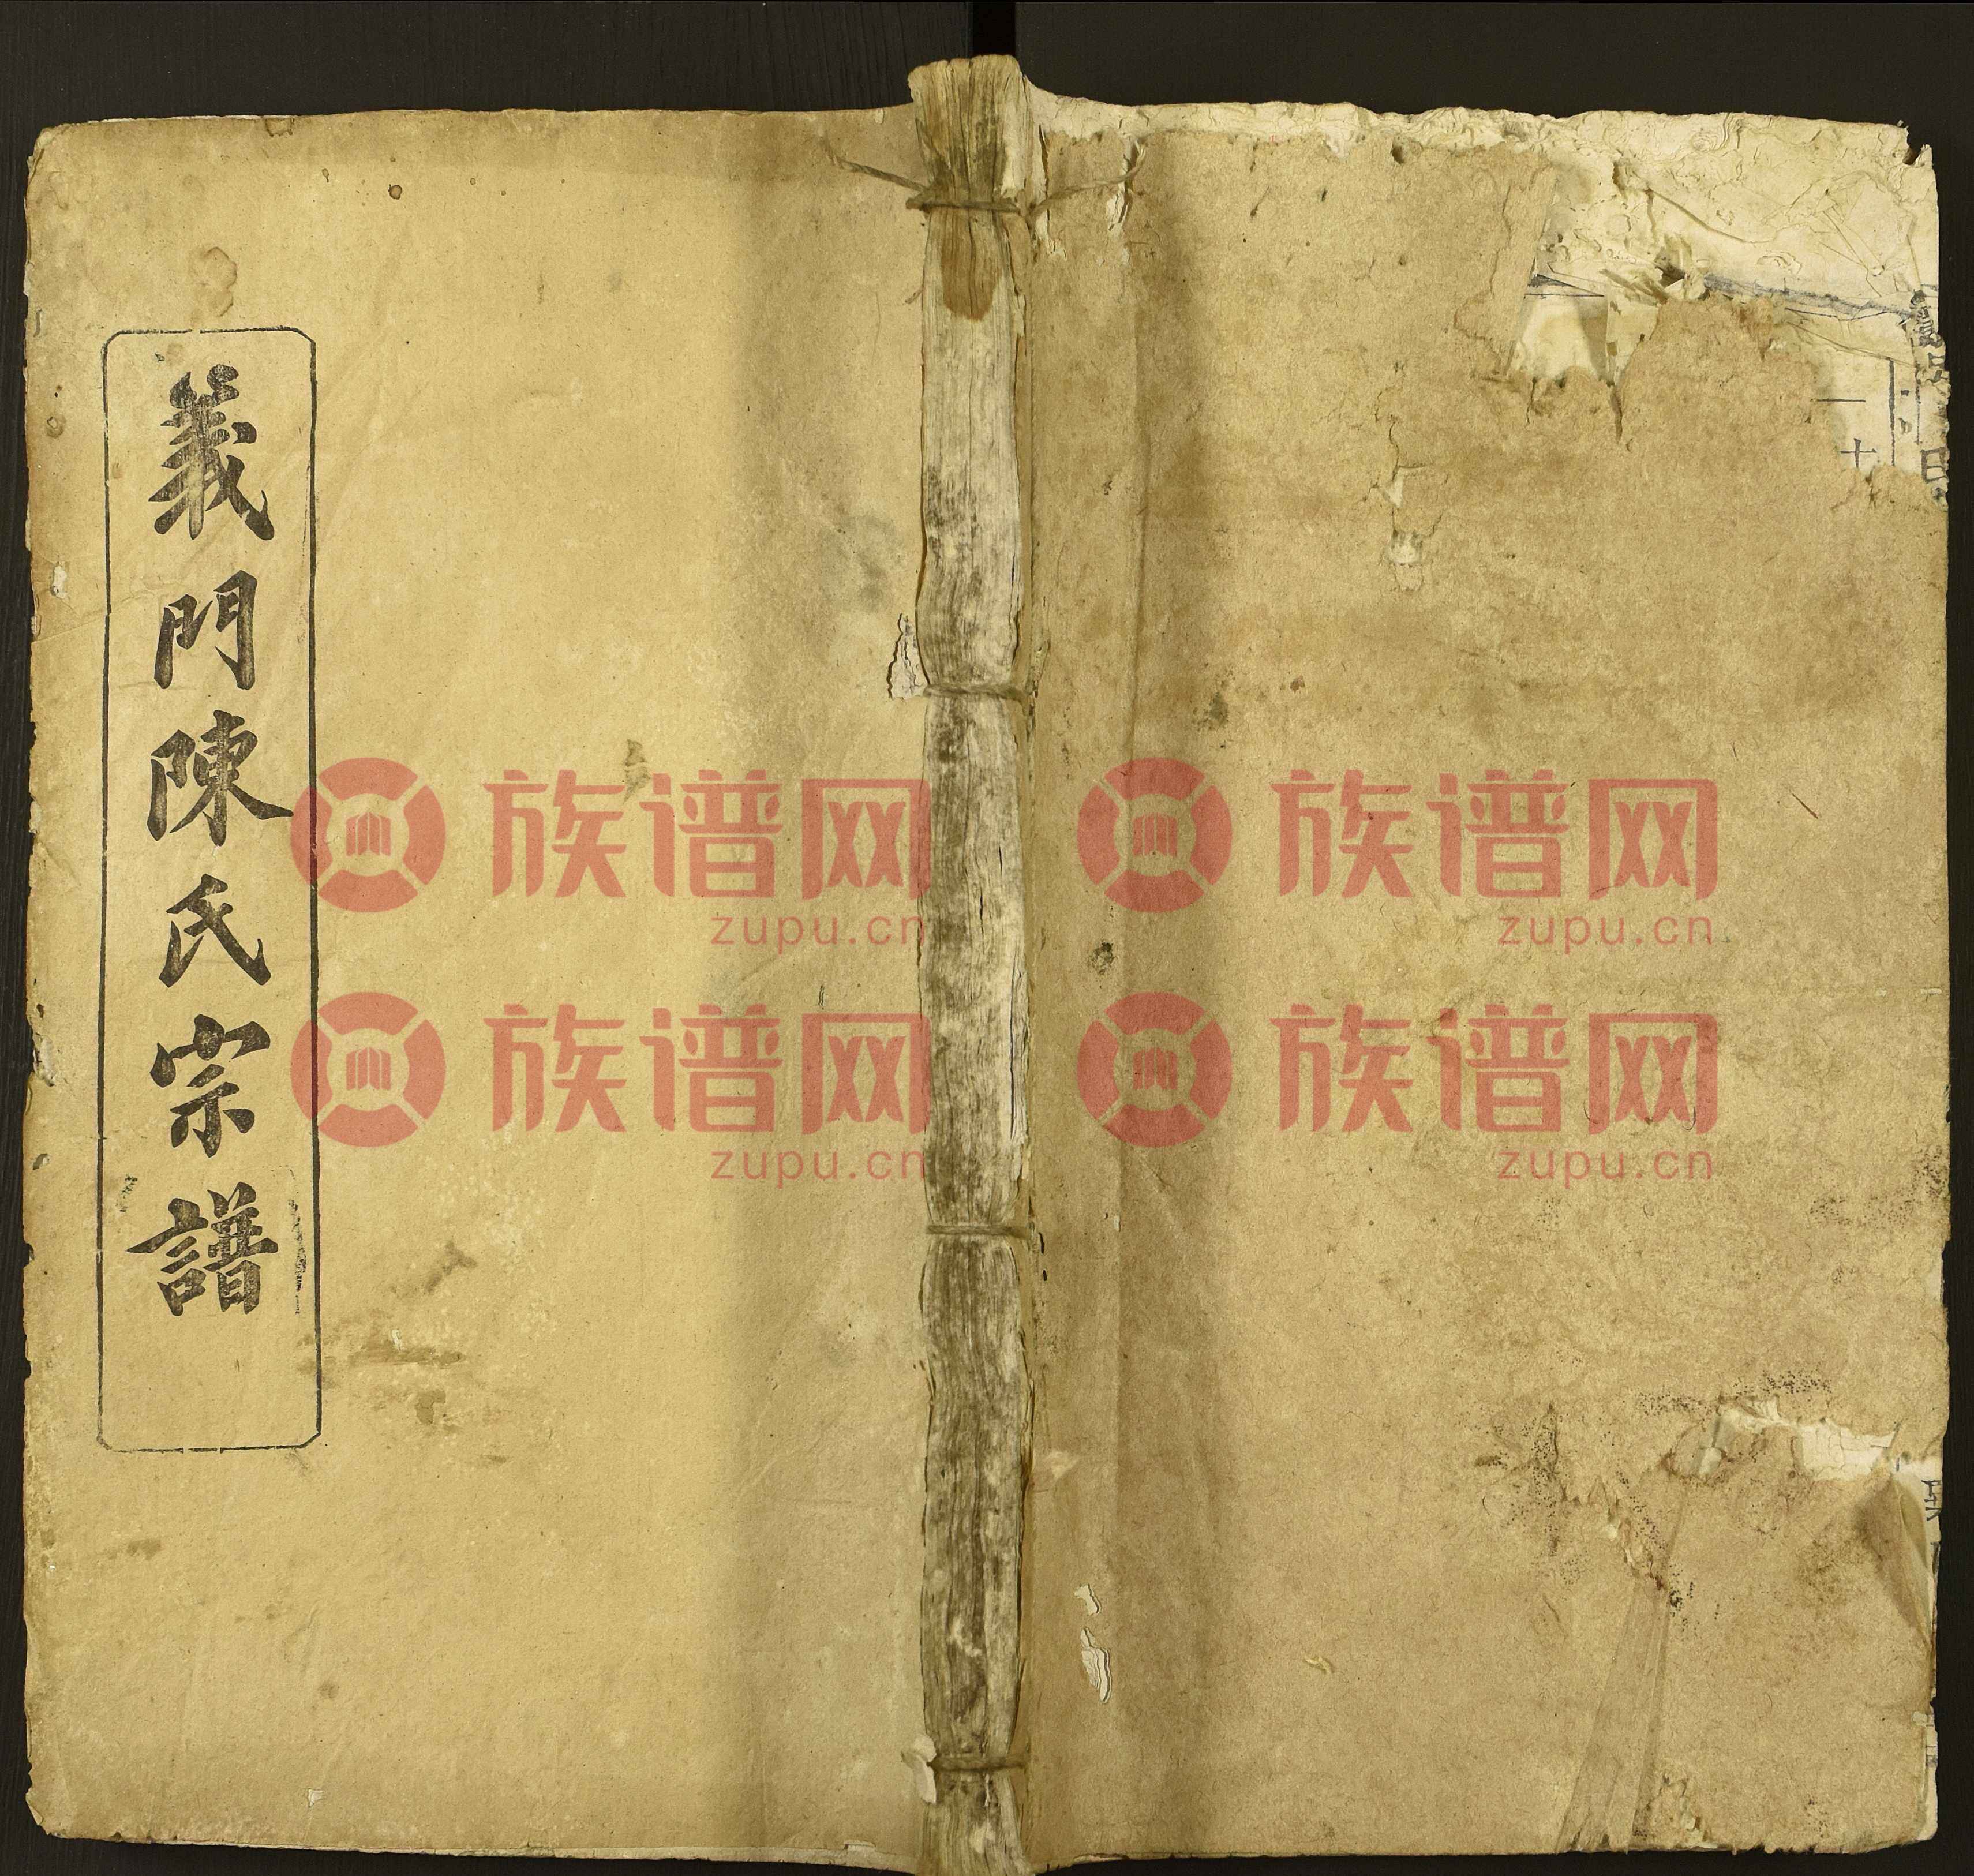 義門陳氏宗譜
族谱网 族谱网
zupu.cn zupu.cn
族谱网 族谱网
zupu.cn zupu.cn
一
十